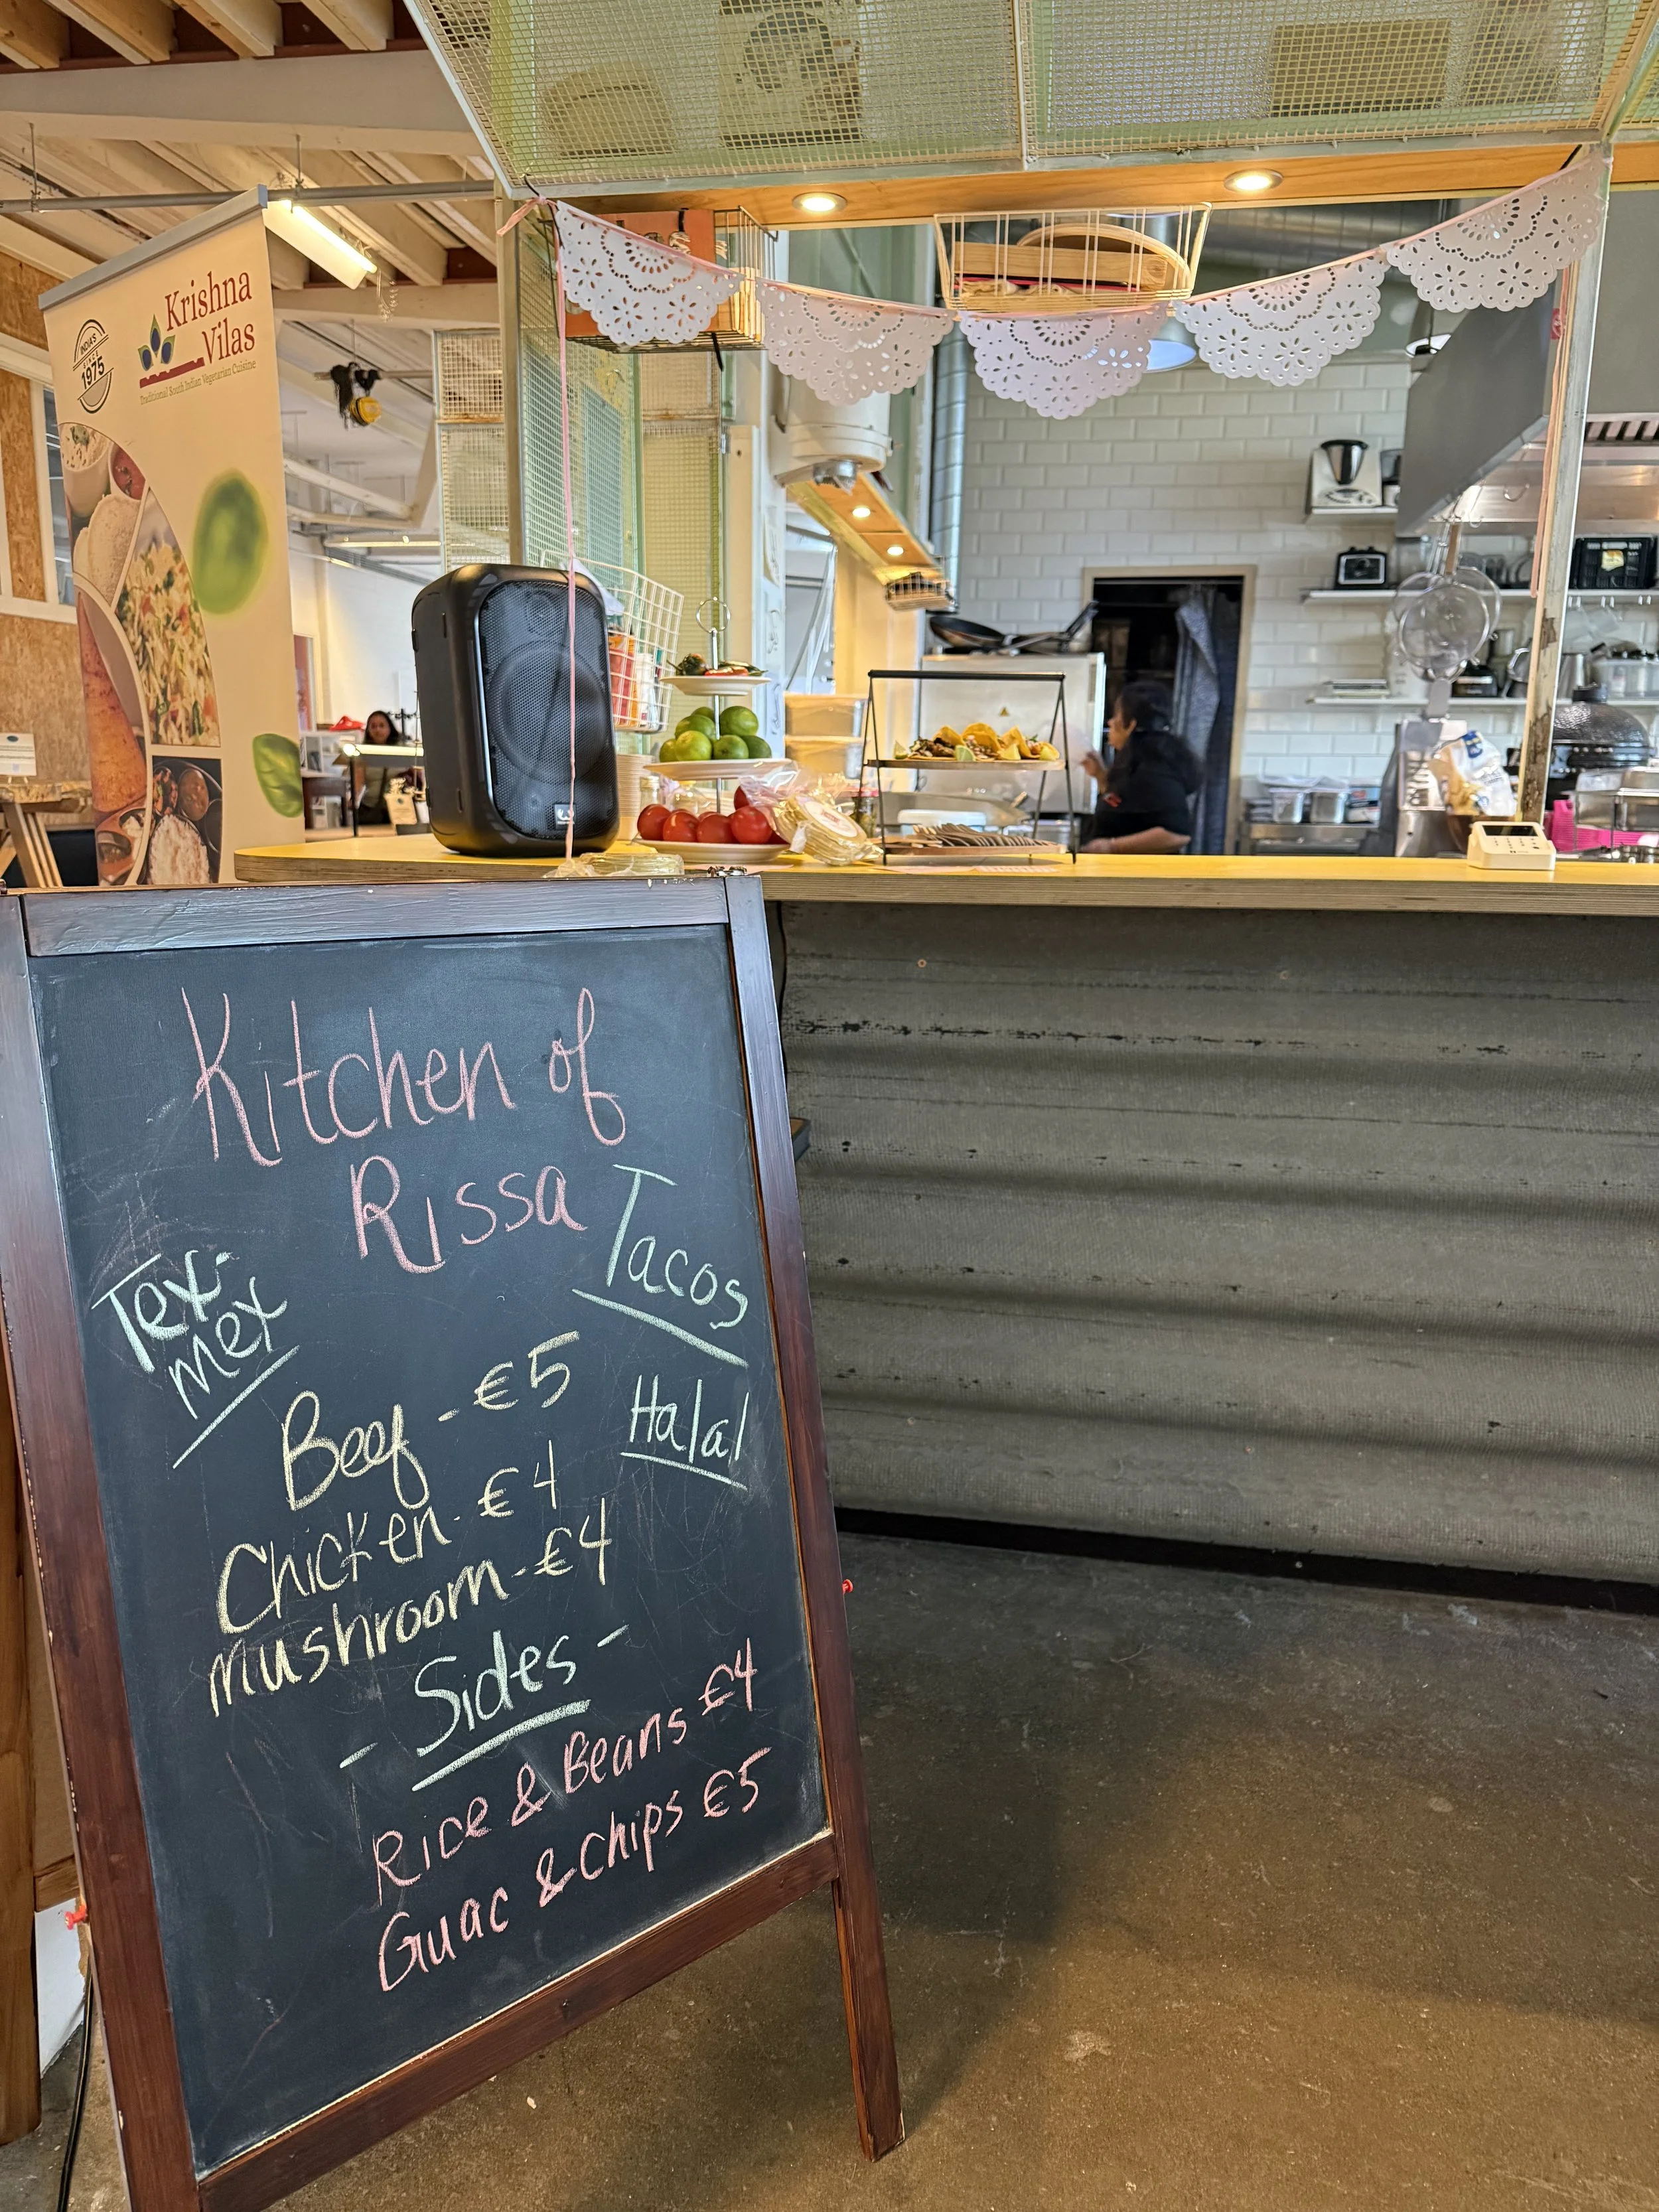 Krishna
Vilas
Traditional South Indian Vegetarian Cuisine
INDIA'S
SINCE
1975
Kitchen of
Rissa
Tex-
mex
Tacos
Halal
Beef - €5
Chicken - €4
mushroom - €4
- Sides -
Rice & Beans €4
Guac & chips €5